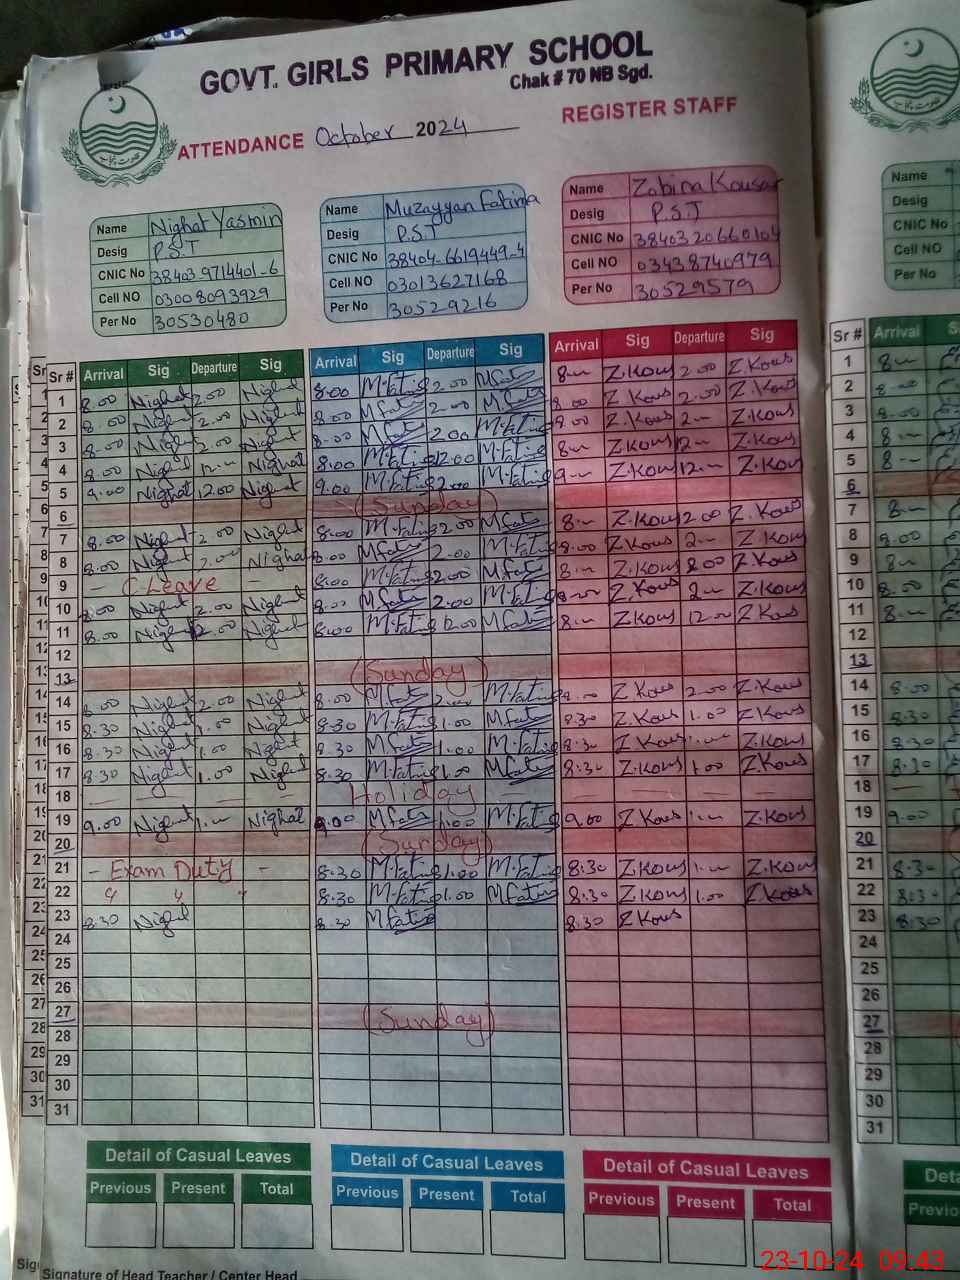 GOVT. GIRLS PRIMARY SCHOOL
Chak # 70 NB Sgd.
ATTENDANCE October 2024 REGISTER STAFF
Name Nighat Yasmin
Desig P.S.T
CNIC No 38403 9714401-6
Cell NO 03008093929
Per No 30530480
Name Muzayyan Fatima
Desig P.S.T
CNIC No 38404-6619449-4
Cell NO 03013627168
Per No 30529216
Name Zobina Kousar
Desig P.S.T
CNIC No 38403 20660104
Cell NO 03438740979
Per No 30529579
Name
Desig
CNIC No
Cell NO
Per No
Sr # Arrival Sig Departure Sig Arrival Sig Departure Sig Arrival Sig Departure Sig Sr # Arrival
1 8.00 Nighat 2.00 Nighat 8.00 M.Fatima 2.00 M Fatima 8— Z.Kous 2.00 Z.Kous 1 8—
2 8.00 Nighat 2.00 Nighat 8.00 M Fatima 2.00 M Fatima 8.00 Z.Kous 2.00 Z.Kous 2 8.00
3 8.00 Nighat 2.00 Nighat 8.00 M Fatima 2.00 M.Fatima 8.00 Z.Kous 2— Z.Kous 3 8.00
4 8.00 Nighat 12— Nighat 8.00 M.Fatima 12.00 M.Fatima 8— Z.Kous 12— Z.Kous 4 8—
5 9.00 Nighat 12.00 Nighat 9.00 M.Fatima 12.00 M.Fatima 9— Z.Kous 12— Z.Kous 5 8—
6 (Sunday) 6
7 8.00 Nighat 2.00 Nighat 8.00 M.Fatima 2.00 M Fatima 8— Z.Kous 2.00 Z.Kous 7 8—
8 8.00 Nighat 2.00 Nighat 8.00 M Fatima 2.00 M.Fatima 8.00 Z.Kous 2— Z.Kous 8 8.00
9 – C.Leave – 8.00 M.Fatima 2.00 M Fatima 8— Z.Kous 2.00 Z.Kous 9 8—
10 8.00 Nighat 2.00 Nighat 8.00 M Fatima 2.00 M.Fatima 8.00 Z.Kous 2— Z.Kous 10 8.00
11 8.00 Nighat 12.00 Nighat 8.00 M.Fatima 12.00 M Fatima 8— Z.Kous 12.00 Z Kous 11 8—
12 12
13 (Sunday) 13
14 8.00 Nighat 2.00 Nighat 8.00 M Fatima 2.00 M.Fatima 8.00 Z Kous 2.00 Z.Kous 14 8.00
15 8.30 Nighat 1.00 Nighat 8.30 M.Fatima 1.00 M Fatima 8.30 Z Kous 1.00 Z.Kous 15 8.30
16 8.30 Nighat 1.00 Nighat 8.30 M Fatima 1.00 M.Fatima 8:30 Z Kous 1— Z.Kous 16 8.30
17 8.30 Nighat 1.00 Nighat 8.30 M.Fatima 1.00 M Fatima 8.30 Z.Kous 1.00 Z.Kous 17 8.30
18 – – – – Holiday – – – – – 18
19 9.00 Nighat 1— Nighat 9.00 M Fatima 1.00 M.Fatima 9.00 Z Kous 1— Z.Kous 19 9.00
20 (Sunday) 20
21 – Exam Duty – 8:30 M.Fatima 1.00 M.Fatima 8:30 Z.Kous 1— Z.Kous 21 8.30
22 " " " 8:30 M.Fatima 1.00 M Fatima 8:30 Z.Kous 1.00 Z.Kous 22 8:30
23 8:30 Nighat 8.30 M Fatima 8.30 Z Kous 23 8:30
24 24
25 25
26 26
27 (Sunday) 27
28 28
29 29
30 30
31 31
Detail of Casual Leaves Detail of Casual Leaves Detail of Casual Leaves
Previous Present Total Previous Present Total Previous Present Total
Signature of Head Teacher / Center Head
23-10-24 09:43